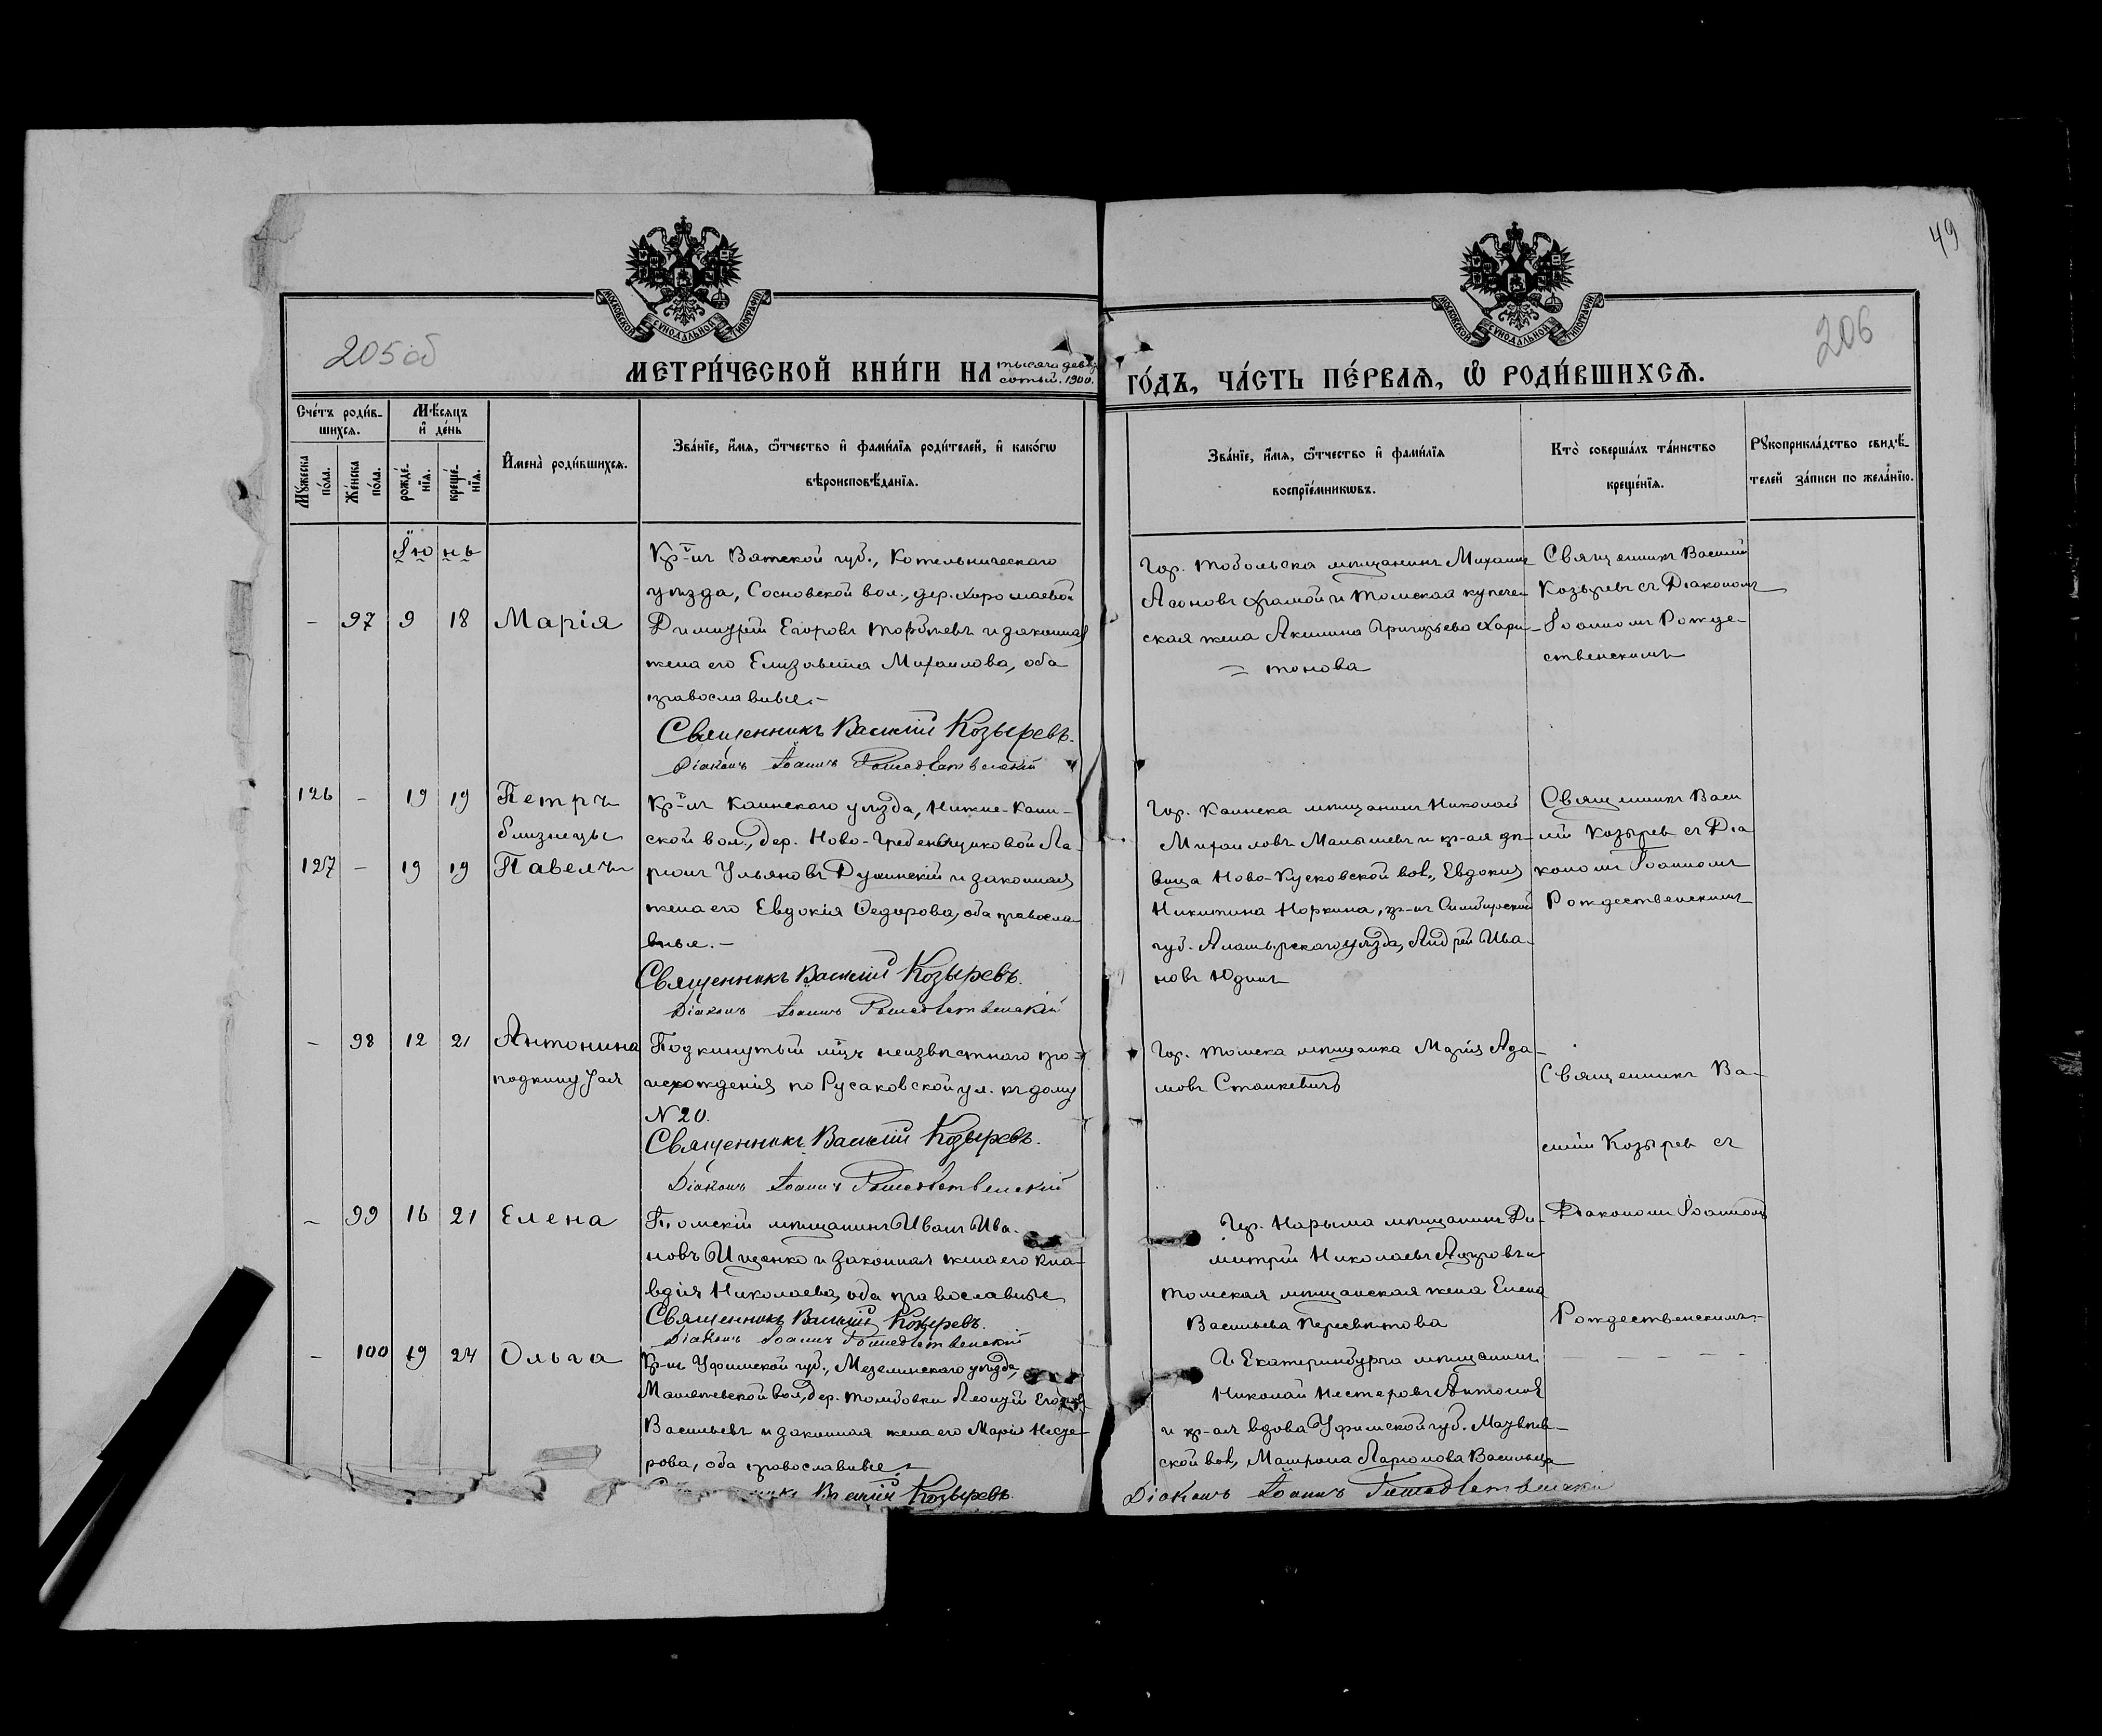 49
205 об
206
МОСКОВСКОЙ СУНОДАЛЬНОЙ ТИПОГРАФІИ
МОСКОВСКОЙ СУНОДАЛЬНОЙ ТИПОГРАФІИ
МЕТРИ́ЧЕСКОЙ КНИ́ГИ НА тысяча девять
сотый. 1900.
ГО́ДЪ, ЧА́СТЬ ПЕ́РВАѦ, Ѡ РОДИ́ВШИХСѦ.
Сче́тъ роди́в-
шихсѧ.
Мꙋ́жеска по́ла.
Же́нска по́ла.
Мѣ́сѧцъ
и҆ де́нь
рожде́-
нїѧ.
креще́-
нїѧ.
И҆мена̀ роди́вшихсѧ.
Зва́нїе, и҆́мѧ, ѻ҆́тчество и҆ фами́лїѧ роди́телей, и҆ како́гѡ
вѣроисповѣ́данїѧ.
Зва́нїе, и҆́мѧ, ѻ҆́тчество и҆ фами́лїѧ
воспрїе́мникѡвъ.
Кто̀ соверша́лъ та́инство
креще́нїѧ.
Рꙋкоприкла́дство свидѣ́-
телей за́писи по жела́нїю.
Іюнь
- 97 9 18 Марія
Кр-нъ Вятской губ., Котельническаго
уѣзда, Сосновской вол., дер.
Димитрій Егоровъ и законная
жена его Елизавета Михаилова, оба
православные.-
Священникъ Василій Козыревъ.
Діаконъ Іоаннъ Рождественскій
Гор. Тобольска мѣщанинъ Михаилъ
и Томская купече-
ская жена Акилина Григорьева Хари-
= тонова
Священникъ Василій
Козыревъ съ Діакономъ
Іоанномъ Рожде-
ственскимъ
126 - 19 19 Петръ
близнецы
127 - 19 19 Павелъ
Кр-нъ Каинскаго уѣзда, Нижне-Каин-
ской вол., дер. Ново-Гребенщиковой Ла-
ріонъ Ульяновъ и законная
жена его Евдокія Федорова, оба правосла-
вные.-
Священникъ Василій Козыревъ.
Діаконъ Іоаннъ Рождественскій
Гор. Каинска мѣщанинъ Николай
Михаиловъ Малышевъ и кр-ая дѣ-
вица Ново-Кусковской вол., Евдокія
Никитина Норкина, кр-нъ Симбирской
губ. Алатырскаго уѣзда, Андрей Ива-
новъ Юдинъ
Священникъ Васи
лій Козырев съ Діа
кономъ Іоанномъ
Рождественскимъ
- 98 12 21 Антонина
подкинутая
Подкинутый мл-цъ неизвѣстнаго про-
исхожденія по Русаковской ул. къ дому
N 20.
Священникъ Василій Козыревъ.
Діаконъ Іоаннъ Рождественскій
Гор. Томска мѣщанка Марія Ада-
мовъ Станкевичъ
Священникъ Ва-
силій Козырев съ
Діакономъ Іоанномъ
Рождественскимъ.-
- 99 16 21 Елена
Томскій мѣщанинъ Иванъ Ива-
новъ Ищенко и законная жена его Кла-
вдія Николаева, оба православные
Священникъ Василій Козыревъ.
Діаконъ Іоаннъ Рождественскій
Гор. Нарыма мѣщанинъ Ди-
митрій Николаевъ и
томская мѣщанская жена Елена
Васильева Пересвѣтова
- 100 19 24 Ольга
Кр-нъ Уфимской губ., Мензелинскаго уѣзда,
вол., дер. Егоровъ
Васильевъ и законная жена его Марія Несте-
рова, оба православные.-
Василій Козыревъ.
Г. Екатеринбурга мѣщанинъ
Николай Нестеровъ
и кр-ая вдова Уфимской губ.
ской вол., Матрона Ларіонова Васильева
Діаконъ Іоаннъ Рождественскій